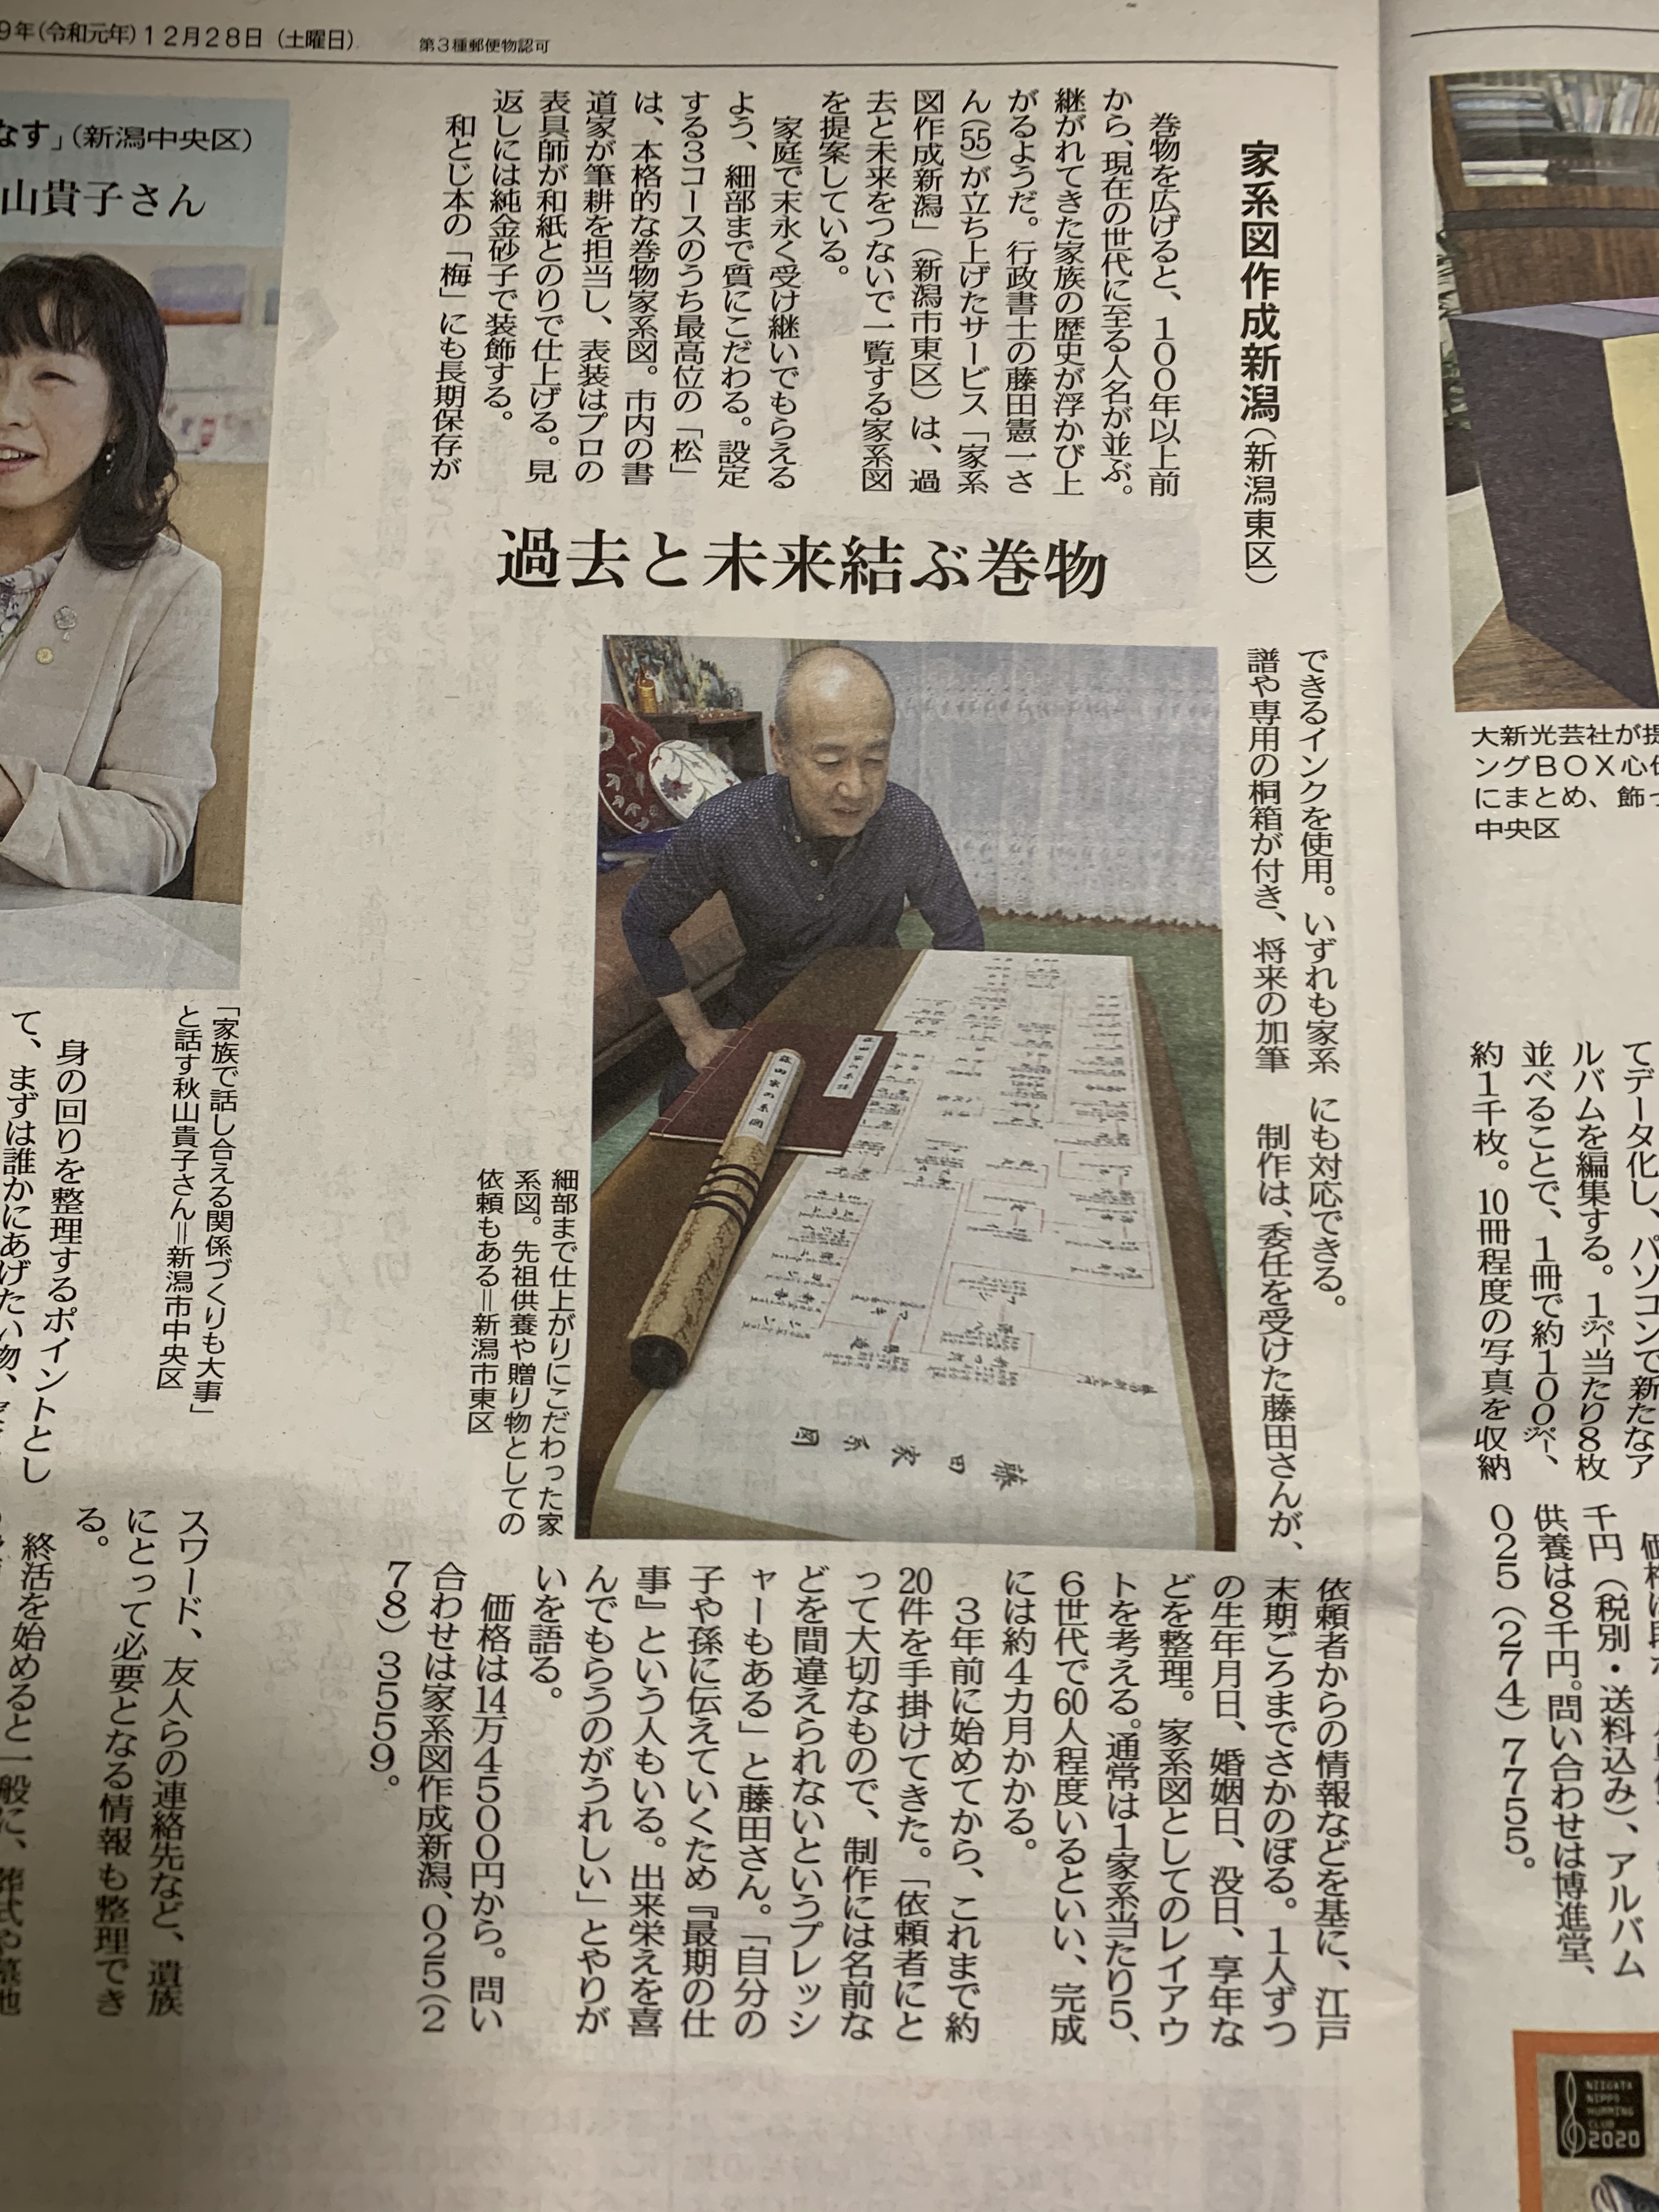 9年(令和元年)12月28日(土曜日)
第3種郵便物認可
家系図作成新潟(新潟東区)
過去と未来結ぶ巻物
巻物を広げると、100年以上前
から、現在の世代に至る人名が並ぶ。
継がれてきた家族の歴史が浮かび上
がるようだ。行政書士の藤田憲一さ
ん(55)が立ち上げたサービス「家系
図作成新潟」(新潟市東区)は、過
去と未来をつないで一覧する家系図
を提案している。
家庭で末永く受け継いでもらえる
よう、細部まで質にこだわる。設定
する3コースのうち最高位の「松」
は、本格的な巻物家系図。市内の書
道家が筆耕を担当し、表装はプロの
表具師が和紙とのりで仕上げる。見
返しには純金砂子で装飾する。
和とじ本の「梅」にも長期保存が
できるインクを使用。いずれも家系
譜や専用の桐箱が付き、将来の加筆
にも対応できる。
制作は、委任を受けた藤田さんが、
依頼者からの情報などを基に、江戸
末期ごろまでさかのぼる。1人ずつ
の生年月日、婚姻日、没日、享年な
どを整理。家系図としてのレイアウ
トを考える。通常は1家系当たり5、
6世代で60人程度いるといい、完成
には約4カ月かかる。
3年前に始めてから、これまで約
20件を手掛けてきた。「依頼者にと
って大切なもので、制作には名前な
どを間違えられないというプレッシ
ャーもある」と藤田さん。「自分の
子や孫に伝えていくため『最期の仕
事』という人もいる。出来栄えを喜
んでもらうのがうれしい」とやりが
いを語る。
価格は14万4500円から。問い
合わせは家系図作成新潟、025(2
78)3559。
細部まで仕上がりにこだわった家
系図。先祖供養や贈り物としての
依頼もある＝新潟市東区
藤田家系図
なす」(新潟中央区)
山貴子さん
「家族で話し合える関係づくりも大事」
と話す秋山貴子さん＝新潟市中央区
身の回りを整理するポイントとし
て、まずは誰かにあげたい物、
スワード、友人らの連絡先など、遺族
にとって必要となる情報も整理でき
る。
終活を始めると一般に、葬式や墓地
大新光芸社が提
ングBOX心
にまとめ、飾っ
中央区
てデータ化し、パソコンで新たなア
ルバムを編集する。1ページ当たり8枚
並べることで、1冊で約100ページ、
約1千枚。10冊程度の写真を収納
千円(税別・送料込み)、アルバム
供養は8千円。問い合わせは博進堂、
025(274)7755。
NIIGATA
NIPPO
HUMMING
CLUB
2020